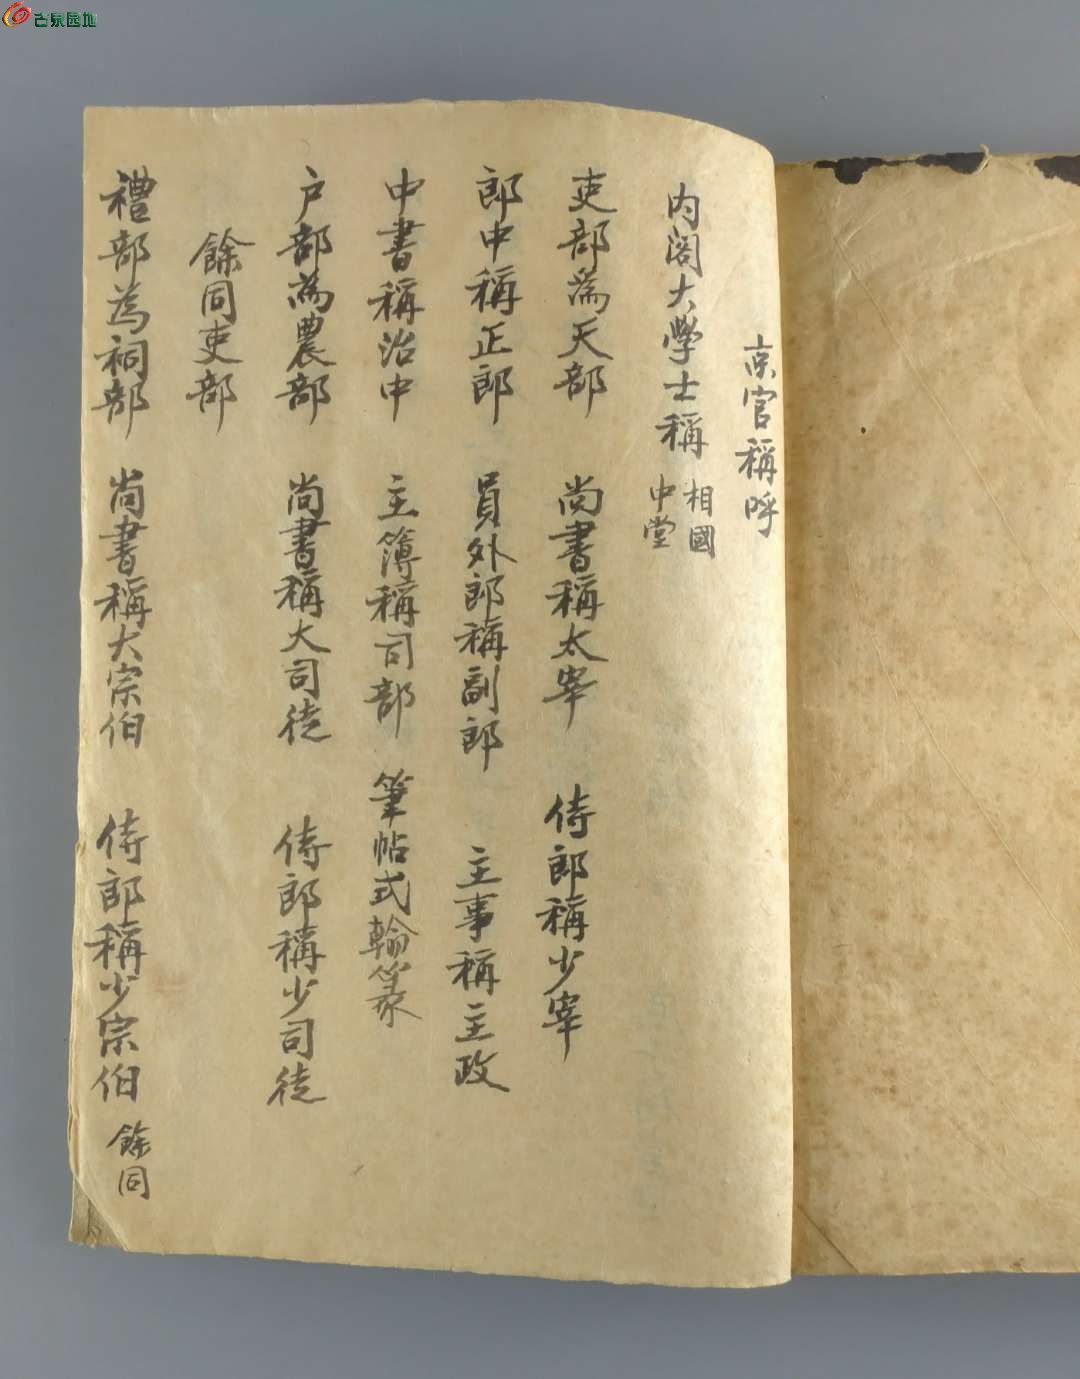 古泉园地
京官稱呼
内阁大學士稱 相國 中堂
吏部為天部 尚書稱太宰 侍郎稱少宰
郎中稱正郎 員外郎稱副郎 主事稱主政
中書稱治中 主簿稱司部 筆帖式翰篆
户部為農部 尚書稱大司徒 侍郎稱少司徒
餘同吏部
禮部為祠部 尚書稱大宗伯 侍郎稱少宗伯 餘同